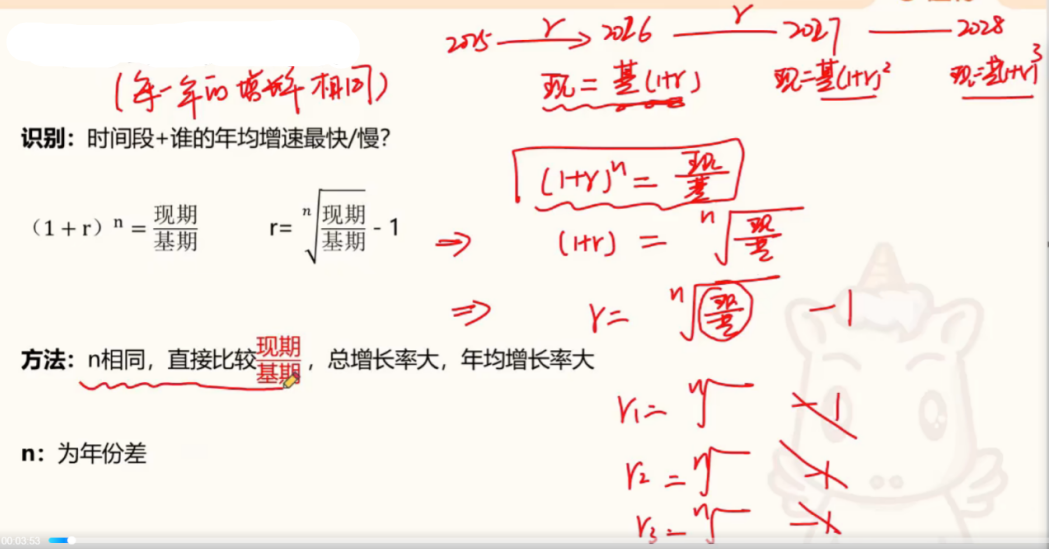 2025 —r→ 2026 —r— 2027 — 2028
(每一年的增长率相同)
现=基(1+r) 现=基(1+r)² 现=基(1+r)³
识别：时间段+谁的年均增速最快/慢?
(1+r)ⁿ=现/基
（1 + r）ⁿ = 现期/基期 r= ⁿ√(现期/基期) - 1
⇒ (1+r) = ⁿ√(现/基)
⇒ r= ⁿ√(现/基) -1
方法：n相同，直接比较现期/基期，总增长率大，年均增长率大
r₁= ⁿ√ -1
n：为年份差
r₂=ⁿ√ -1
r₃=ⁿ√ -1
00:03:53